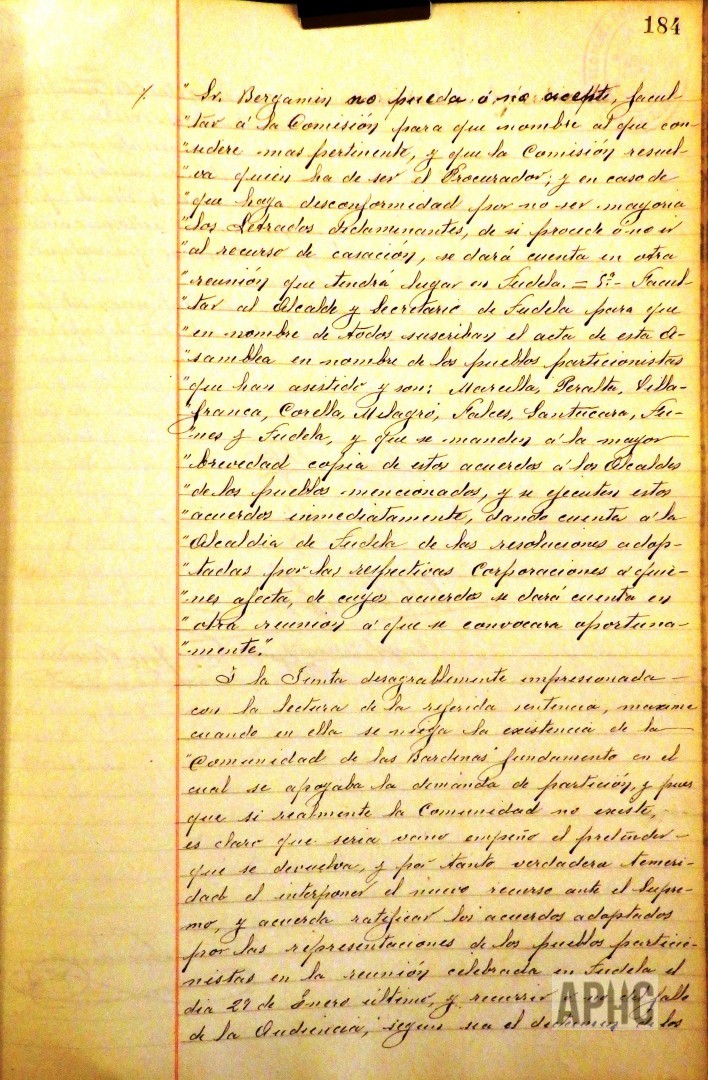 184
" Sr. Bergamin no pueda ó no acepte, facul-
" tar á la Comisión para que nombre al que con-
" sidere mas pertinente, y que la Comisión resuel-
" va quien ha de ser el Procurador; y en caso de
" que haya desconformidad por no ser mayoria
" los Letrados dictaminantes, de si procede ó no ir
" al recurso de casación, se dará cuenta en otra
" reunión que tendrá lugar en Tudela. = 5ª.- Facul-
" tar al Alcalde y Secretario de Tudela para que
" en nombre de todos suscriban el acta de esta A-
" samblea en nombre de los pueblos particionistas
" que han asistido y son: Marcilla, Peralta, Villa-
" franca, Corella, Milagro, Falces, Santacara, Fu-
" nes y Tudela, y que se manden á la mayor
" brevedad copia de estos acuerdos á los Alcaldes
" de los pueblos mencionados, y se ejecuten estos
" acuerdos inmediatamente, dando cuenta á la
" Alcaldia de Tudela de las resoluciones adop-
" tadas por las respectivas Corporaciones á quie-
" nes afecta, de cuyos acuerdos se dará cuenta en
" otra reunion á que se convocara oportuna-
" mente."
Y la Junta desagrablemente impresionada
con la lectura de la referida sentencia, maxime
cuando en ella se niega la existencia de la
"Comunidad de las Bardenas" fundamento en el
cual se apoyaba la demanda de partición, y pues
que si realmente la Comunidad no existe,
es claro que seria vano empeño el pretender
que se devuelva, y por tanto verdadera temeri-
dad el interponer el nuevo recurso ante el Supre-
mo, y acuerda ratificar los acuerdos adoptados
por las representaciones de los pueblos particio-
nistas en la reunión celebrada en Tudela el
dia 29 de Enero último, y recurrir ó no del fallo
de la Audiencia, segun sea el dictamen de los
APHG